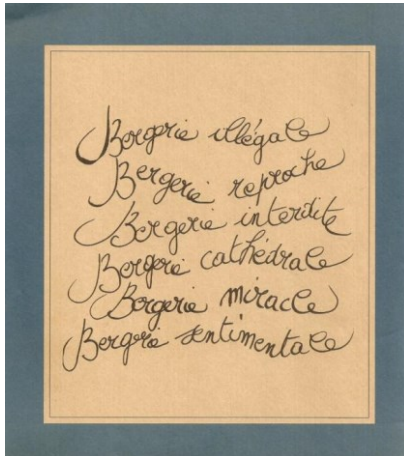 Bergerie illégale
Bergerie reproche
Bergerie interdite
Bergerie cathédrale
Bergerie miracle
Bergerie sentimentale